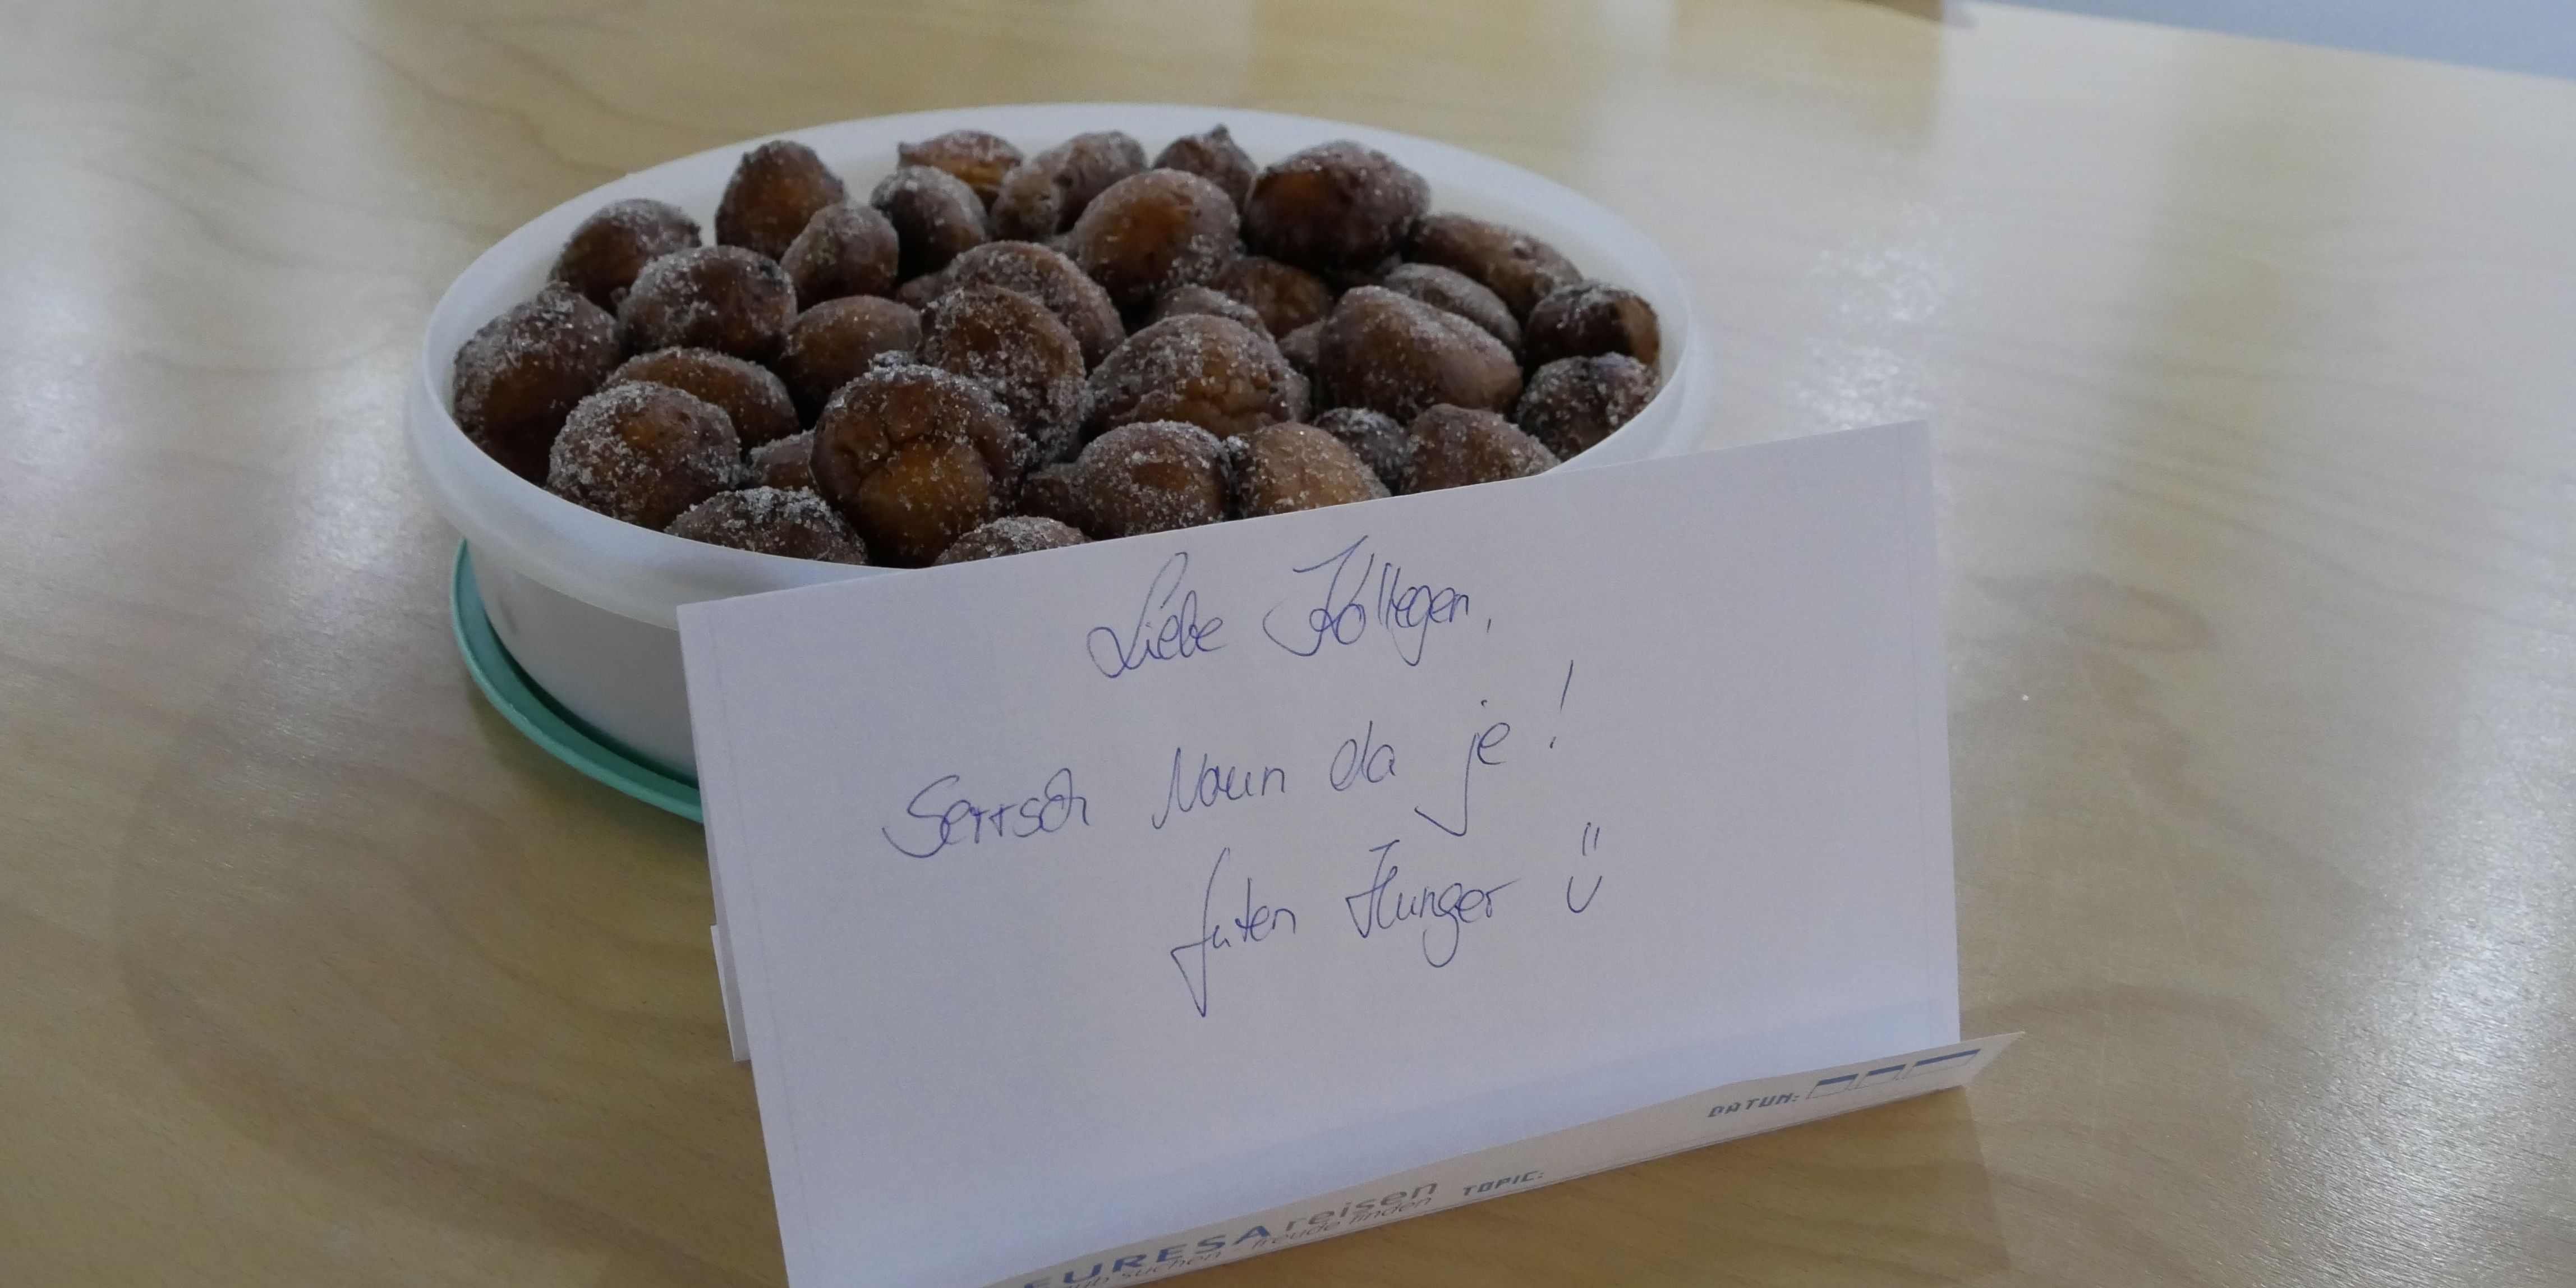 Liebe Kollegen,
Serrsch Naun da je!
Guten Hunger ü
DATUM:
TOPIC:
EURESAreisen
suchen freude finden